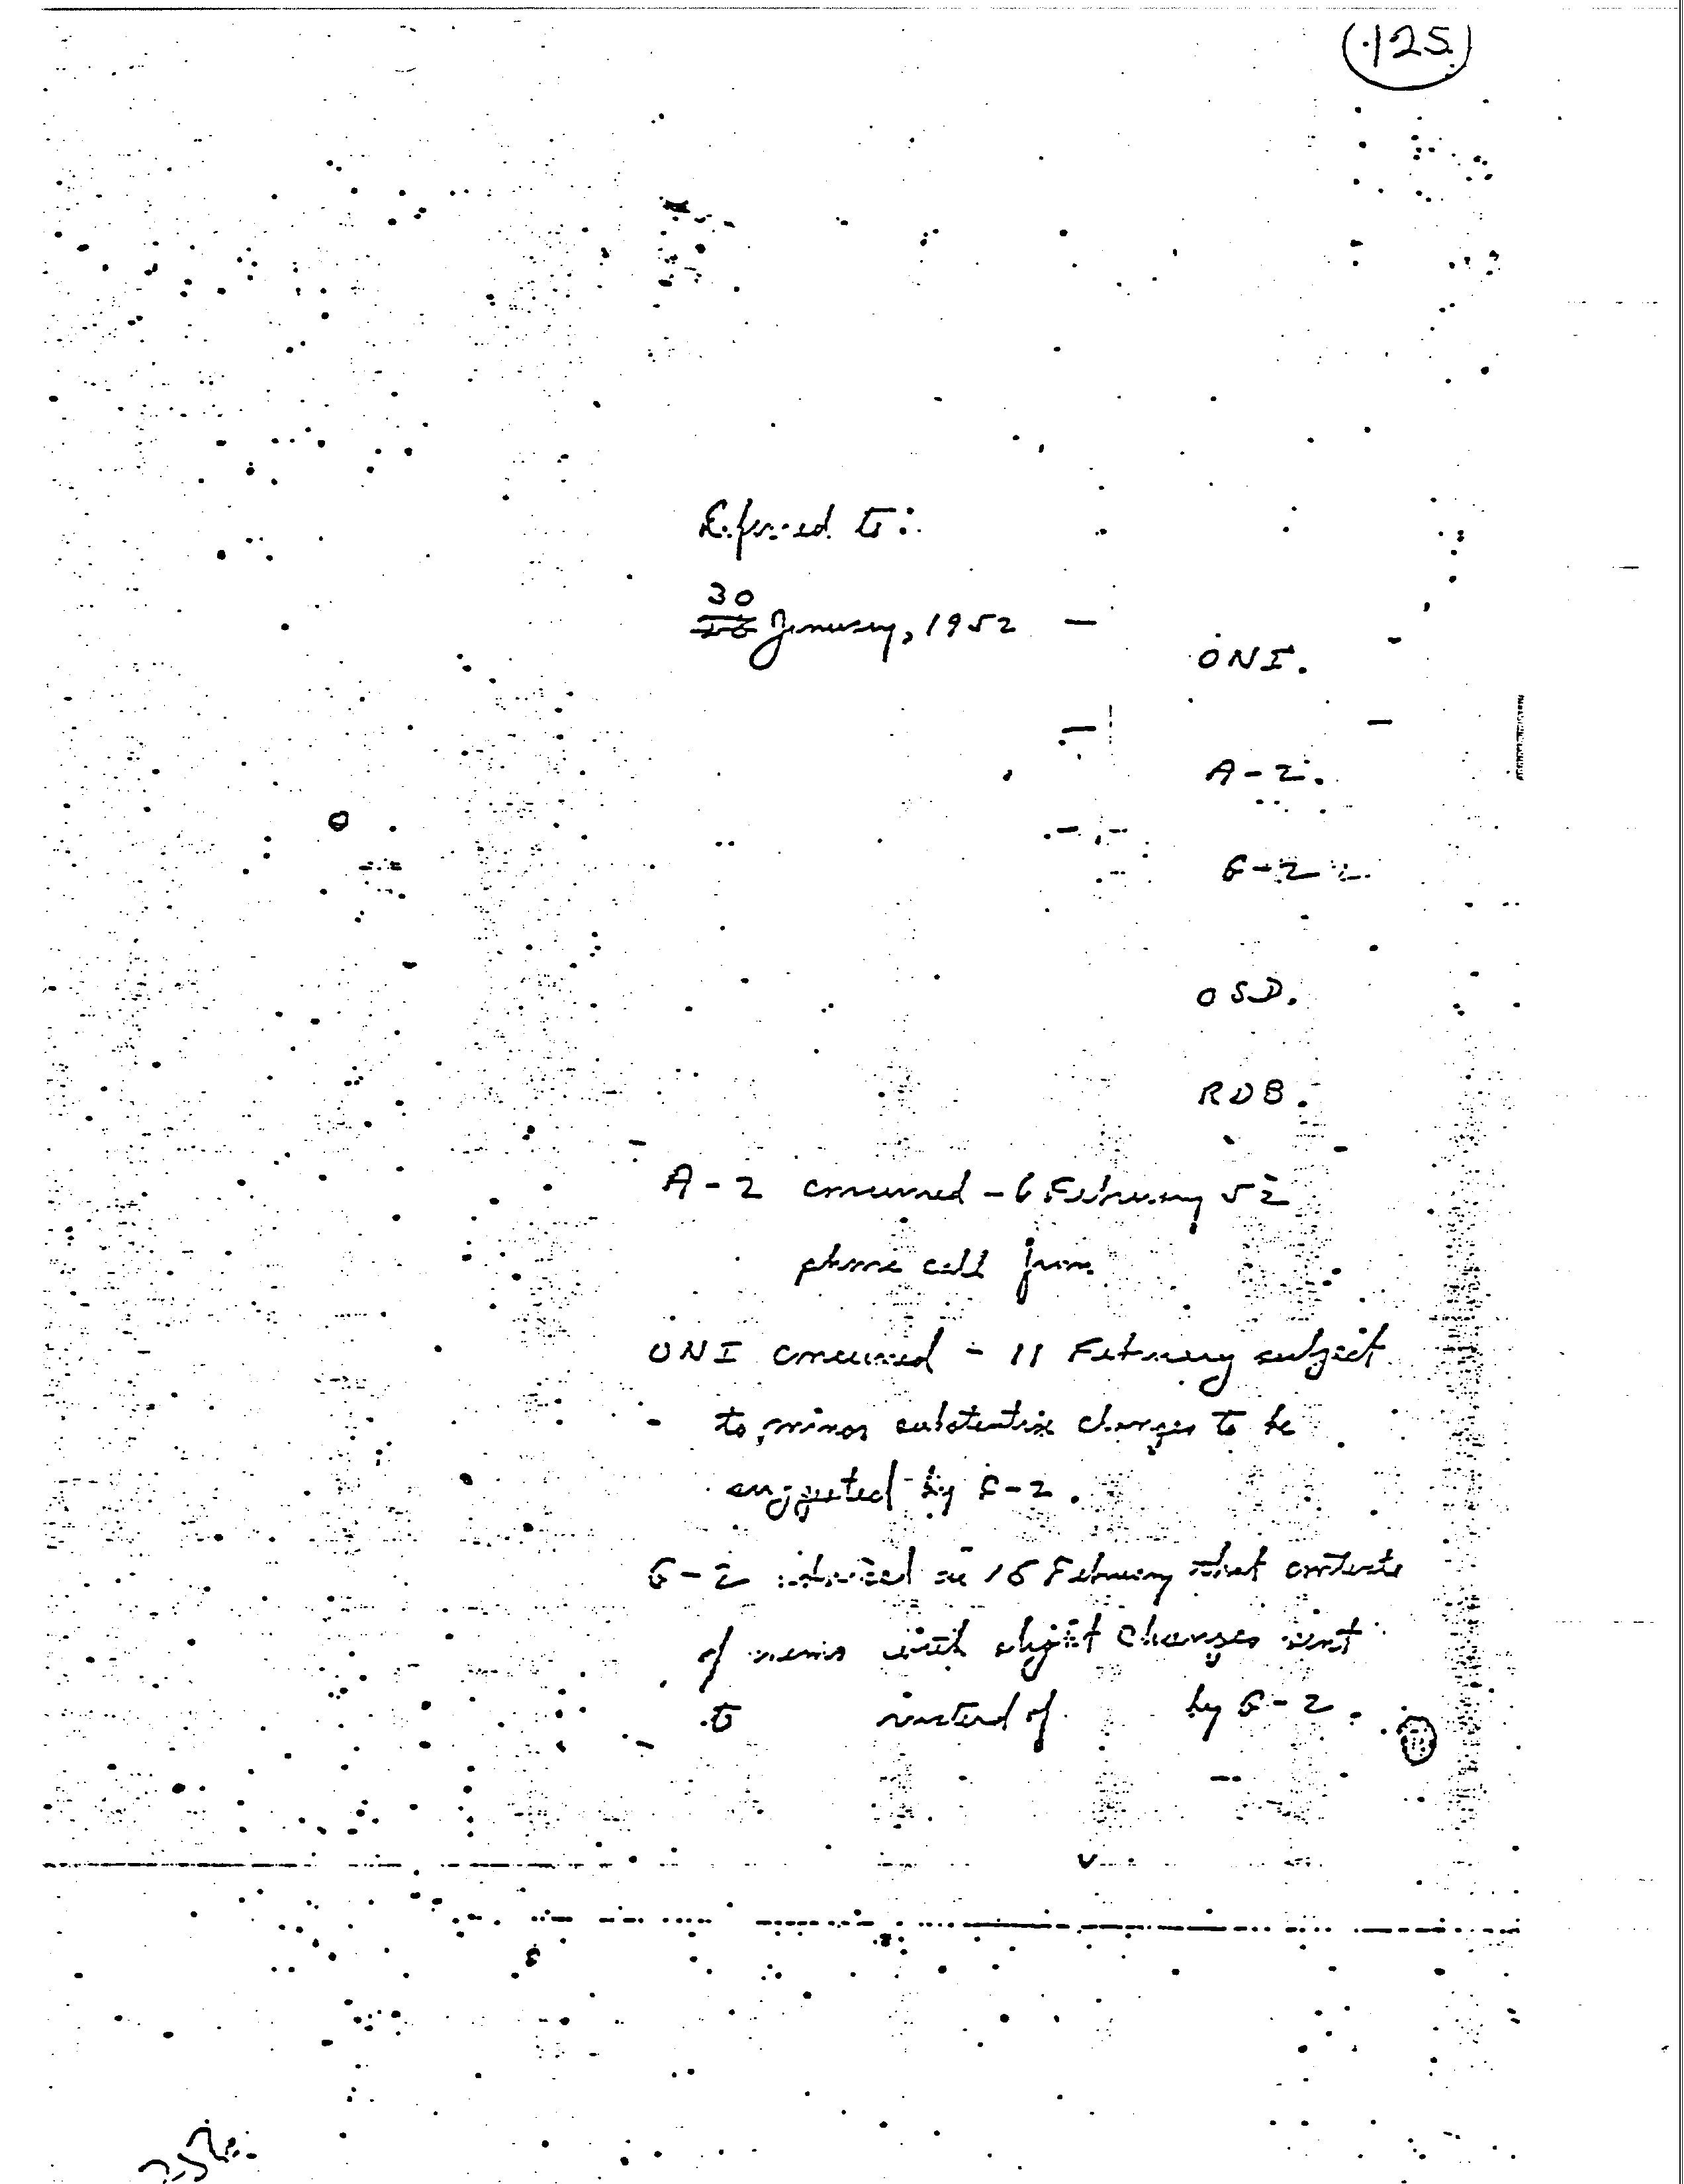 (125)
Referred to:
30
January, 1952 —
ONI.
A-2.
G-2
OSD.
RDB.
A-2 concurred - 6 February 52
phone call from
ONI concurred - 11 February subject
to minor substantive changes to be
suggested by G-2.
G-2 on 15 February that contents
of memo with slight changes sent
to instead of by G-2.